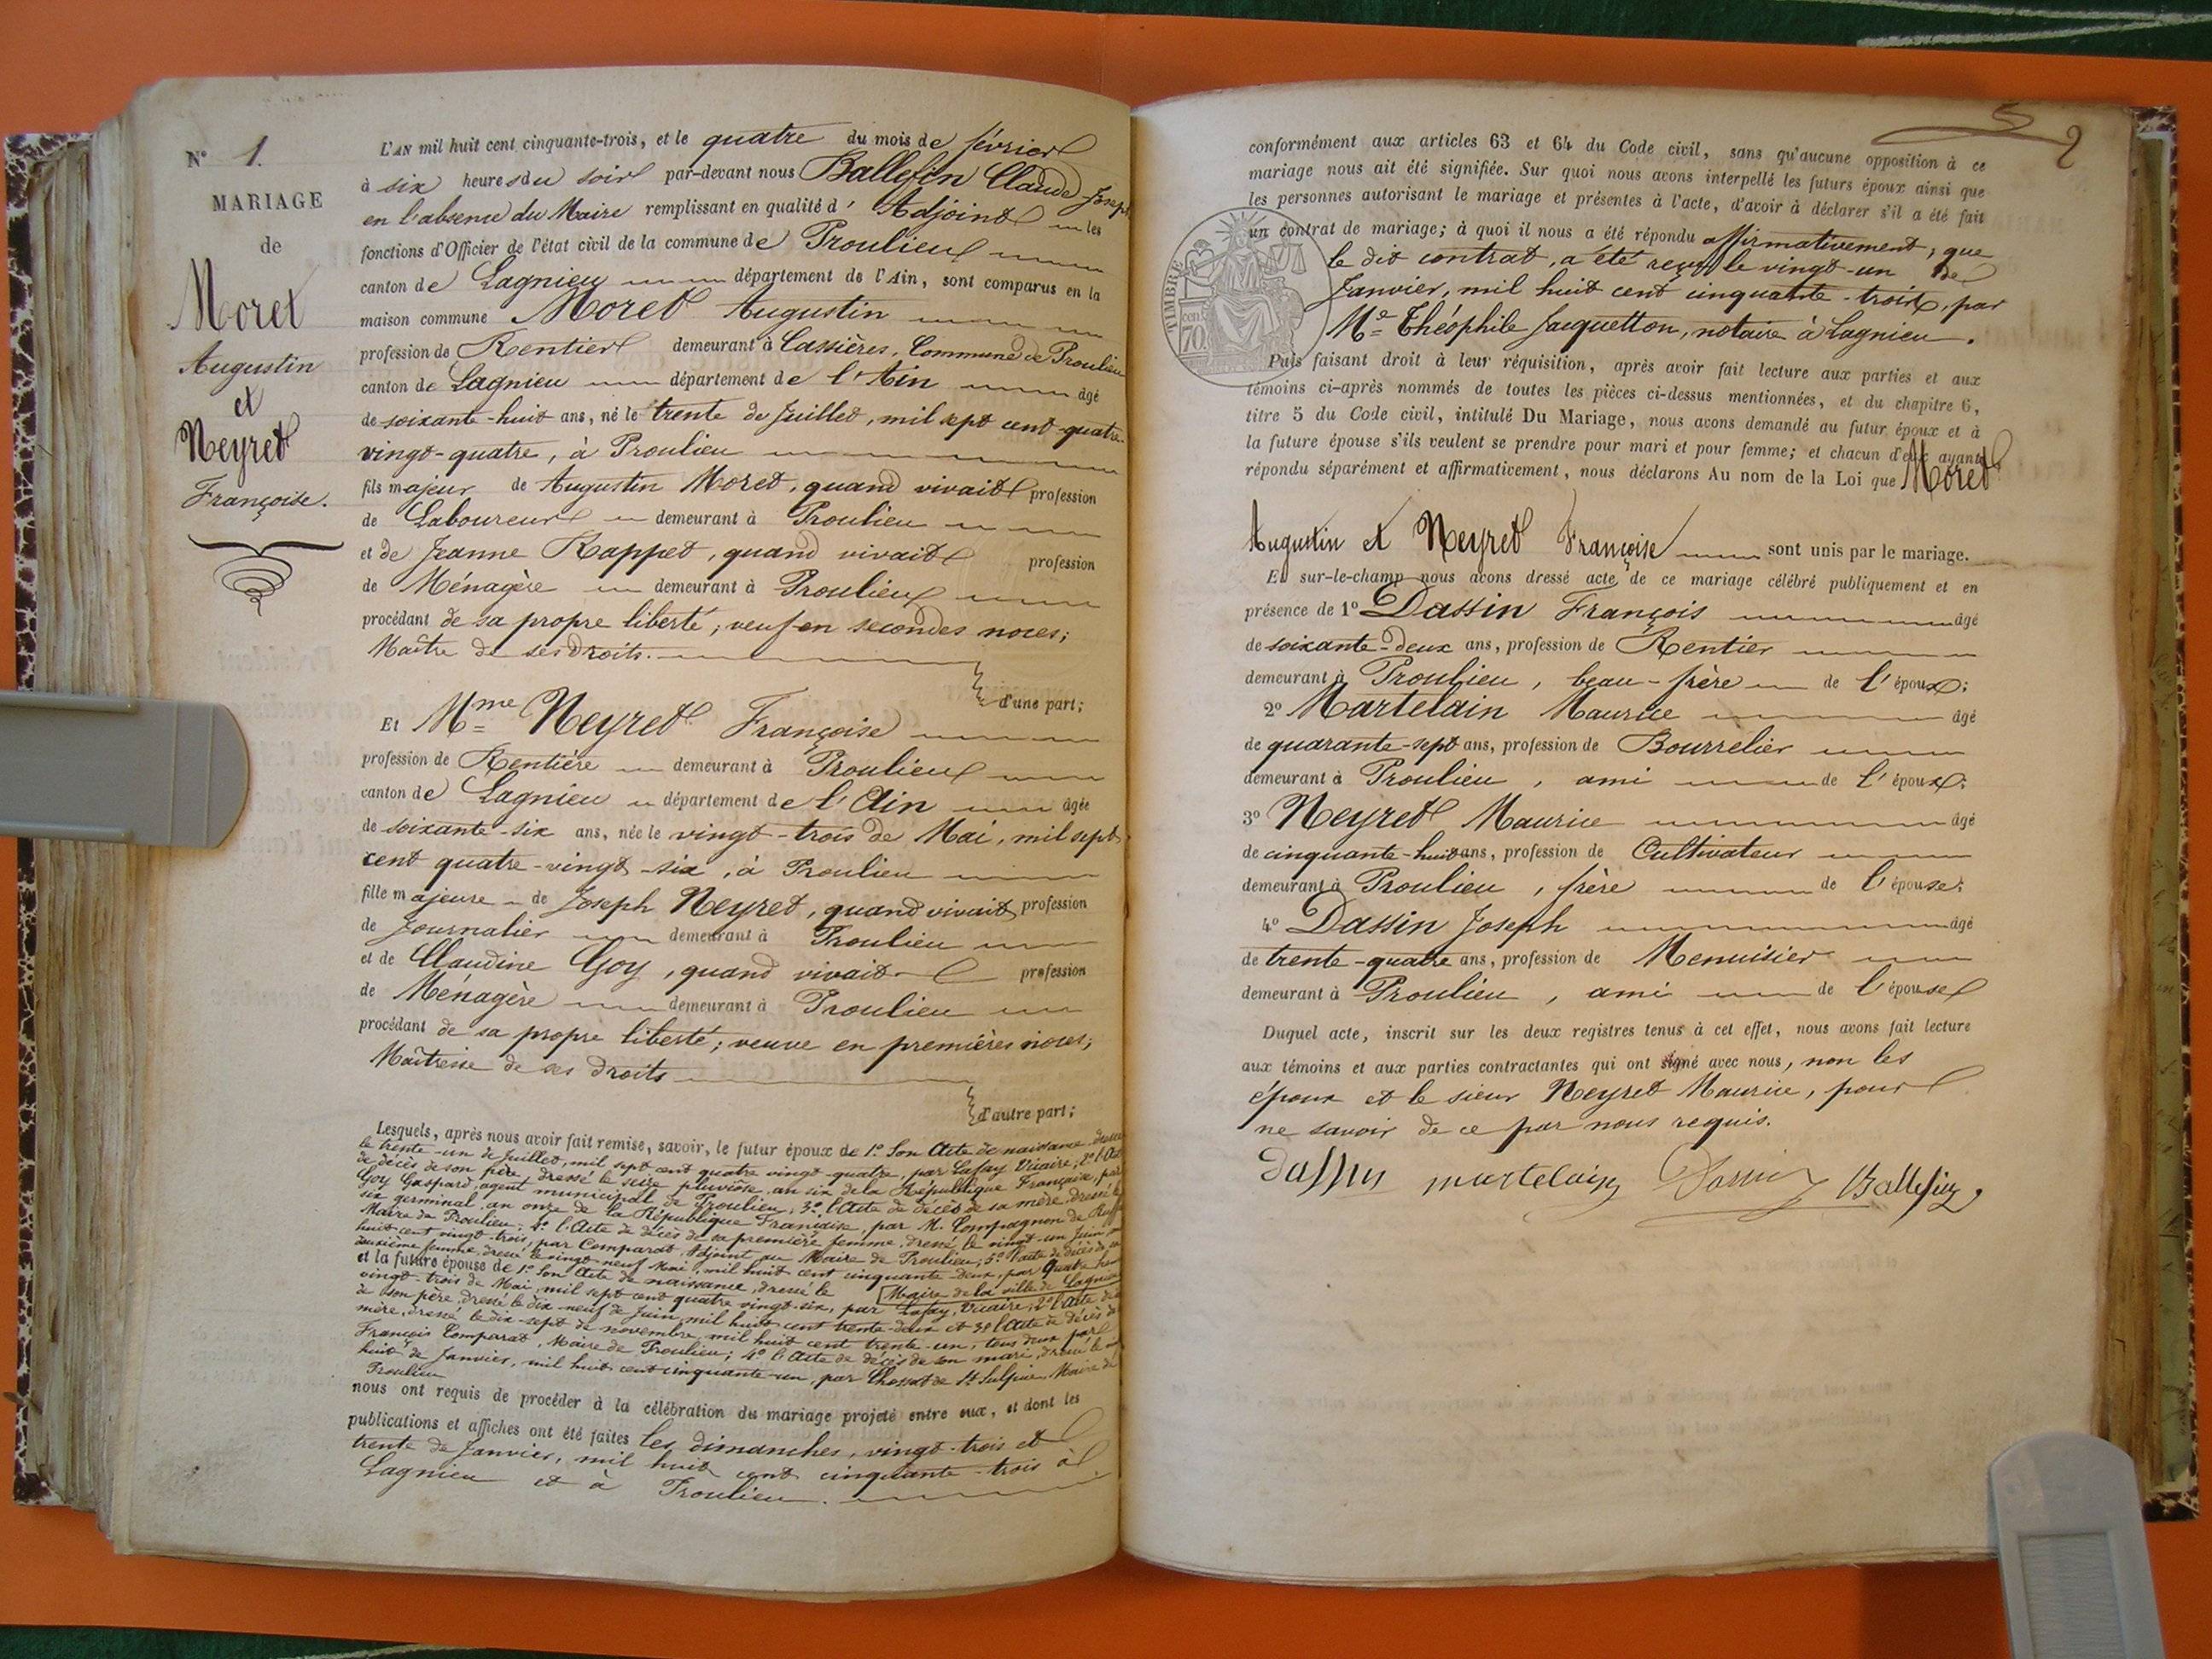 N° 1.
MARIAGE
de
Moret
Augustin
et
Neyret
Françoise.
L'AN mil huit cent cinquante-trois, et le quatre du mois de février
à six heures du soir par-devant nous Ballefin Claude Joseph
en l'absence du Maire remplissant en qualité d' Adjoint les
fonctions d'Officier de l'état civil de la commune de Proulieu
canton de Lagnieu département de l'Ain, sont comparus en la
maison commune Moret Augustin
profession de Rentier demeurant à Cassières, Commune de Proulieu
canton de Lagnieu département de l'Ain âgé
de soixante-huit ans, né le trente de Juillet, mil sept cent quatre-
vingt-quatre, à Proulieu
fils majeur de Augustin Moret, quand vivait profession
de Laboureur demeurant à Proulieu
et de Jeanne Rappet, quand vivait profession
de Ménagère demeurant à Proulieu
procédant de sa propre liberté; veuf en secondes noces;
Maître de ses droits.
d'une part;
Et Mme Neyret Françoise
profession de Rentière demeurant à Proulieu
canton de Lagnieu département de l'Ain âgée
de soixante-six ans, née le vingt-trois de Mai, mil sept
cent quatre-vingt-six, à Proulieu
fille majeure de Joseph Neyret, quand vivait profession
de Journalier demeurant à Proulieu
et de Claudine Goy, quand vivait profession
de Ménagère demeurant à Proulieu
procédant de sa propre liberté; veuve en premières noces;
Maîtresse de ses droits
d'autre part;
Lesquels, après nous avoir fait remise, savoir, le futur époux de 1.° Son Acte de naissance dressé
le trente-un de Juillet, mil sept cent quatre vingt-quatre, par Lafay Vicaire; 2.° l'Acte
de décès de son père, dressé le seize pluviôse, an six de la République Française, par
Goy Gaspard, agent municipal de Proulieu; 3.° l'Acte de décès de sa mère, dressé le
six germinal, an onze de la République Française, par M. Compagnon de
Maire de Proulieu; 4.° l'Acte de décès de sa première femme, dressé le vingt-un Juin
huit cent vingt-trois, par Comparat, Adjoint au Maire de Proulieu; 5.° l'acte de décès de sa
deuxième femme, dressé le vingt-neuf Mai, mil huit cent cinquante-deux, par
et la future épouse de 1.° Son Acte de naissance, dressé le [Maire de la ville de Lagnieu
vingt-trois de Mai, mil sept cent quatre vingt-six, par Lafay, Vicaire; 2.° l'Acte de
de son père, dressé le dix-neuf de Juin, mil huit cent trente-deux et 3.° l'Acte de décès de
mère, dressé le dix-sept de novembre, mil huit cent trente-un, tous deux par
François Comparat, Maire de Proulieu; 4.° l'Acte de décès de son mari, dressé le
huit de Janvier, mil huit cent cinquante-un, par Chossat de St Sulpice, Maire de
Proulieu
nous ont requis de procéder à la célébration du mariage projeté entre eux, et dont les
publications et affiches ont été faites les dimanches, vingt-trois et
trente de Janvier, mil huit cent cinquante-trois à
Lagnieu et à Proulieu.
5 2
conformément aux articles 63 et 64 du Code civil, sans qu'aucune opposition à ce
mariage nous ait été signifiée. Sur quoi nous avons interpellé les futurs époux ainsi que
les personnes autorisant le mariage et présentes à l'acte, d'avoir à déclarer s'il a été fait
un contrat de mariage; à quoi il nous a été répondu affirmativement; que
le dit contrat, a été reçu le vingt-un de
Janvier, mil huit cent cinquante-trois, par
Me Théophile Jacquetton, notaire à Lagnieu.
TIMBRE
cen
70
Puis faisant droit à leur réquisition, après avoir fait lecture aux parties et aux
témoins ci-après nommés de toutes les pièces ci-dessus mentionnées, et du chapitre 6,
titre 5 du Code civil, intitulé Du Mariage, nous avons demandé au futur époux et à
la future épouse s'ils veulent se prendre pour mari et pour femme; et chacun d'eux ayant
répondu séparément et affirmativement, nous déclarons Au nom de la Loi que Moret
Augustin et Neyret Françoise sont unis par le mariage.
Et sur-le-champ nous avons dressé acte de ce mariage célébré publiquement et en
présence de 1° Dassin François âgé
de soixante-deux ans, profession de Rentier
demeurant à Proulieu, beau-frère de l'époux;
2° Martelain Maurice âgé
de quarante-sept ans, profession de Bourrelier
demeurant à Proulieu, ami de l'époux;
3° Neyret Maurice âgé
de cinquante-huit ans, profession de Cultivateur
demeurant à Proulieu, frère de l'épouse;
4° Dassin Joseph âgé
de trente-quatre ans, profession de Menuisier
demeurant à Proulieu, ami de l'épouse
Duquel acte, inscrit sur les deux registres tenus à cet effet, nous avons fait lecture
aux témoins et aux parties contractantes qui ont signé avec nous, non les
époux et le sieur Neyret Maurice, pour
ne savoir de ce par nous requis.
Dassin martelain Dassin Ballefin